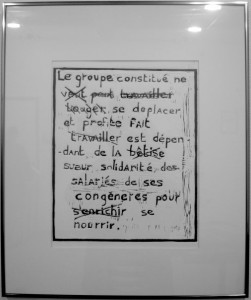 Le groupe constitué ne
veut peut travailler
bouger, se deplacer
et profite FAIT
travailler est dépen-
dant de la bêtise
sueur solidarité des
salariés de ses
congénères pour
s'enrichir se
nourrir.